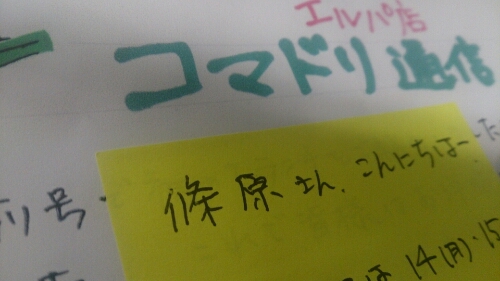 エルパ店
コマドリ通信
篠原さん、こんにちはー
リ号
は14(月)・15